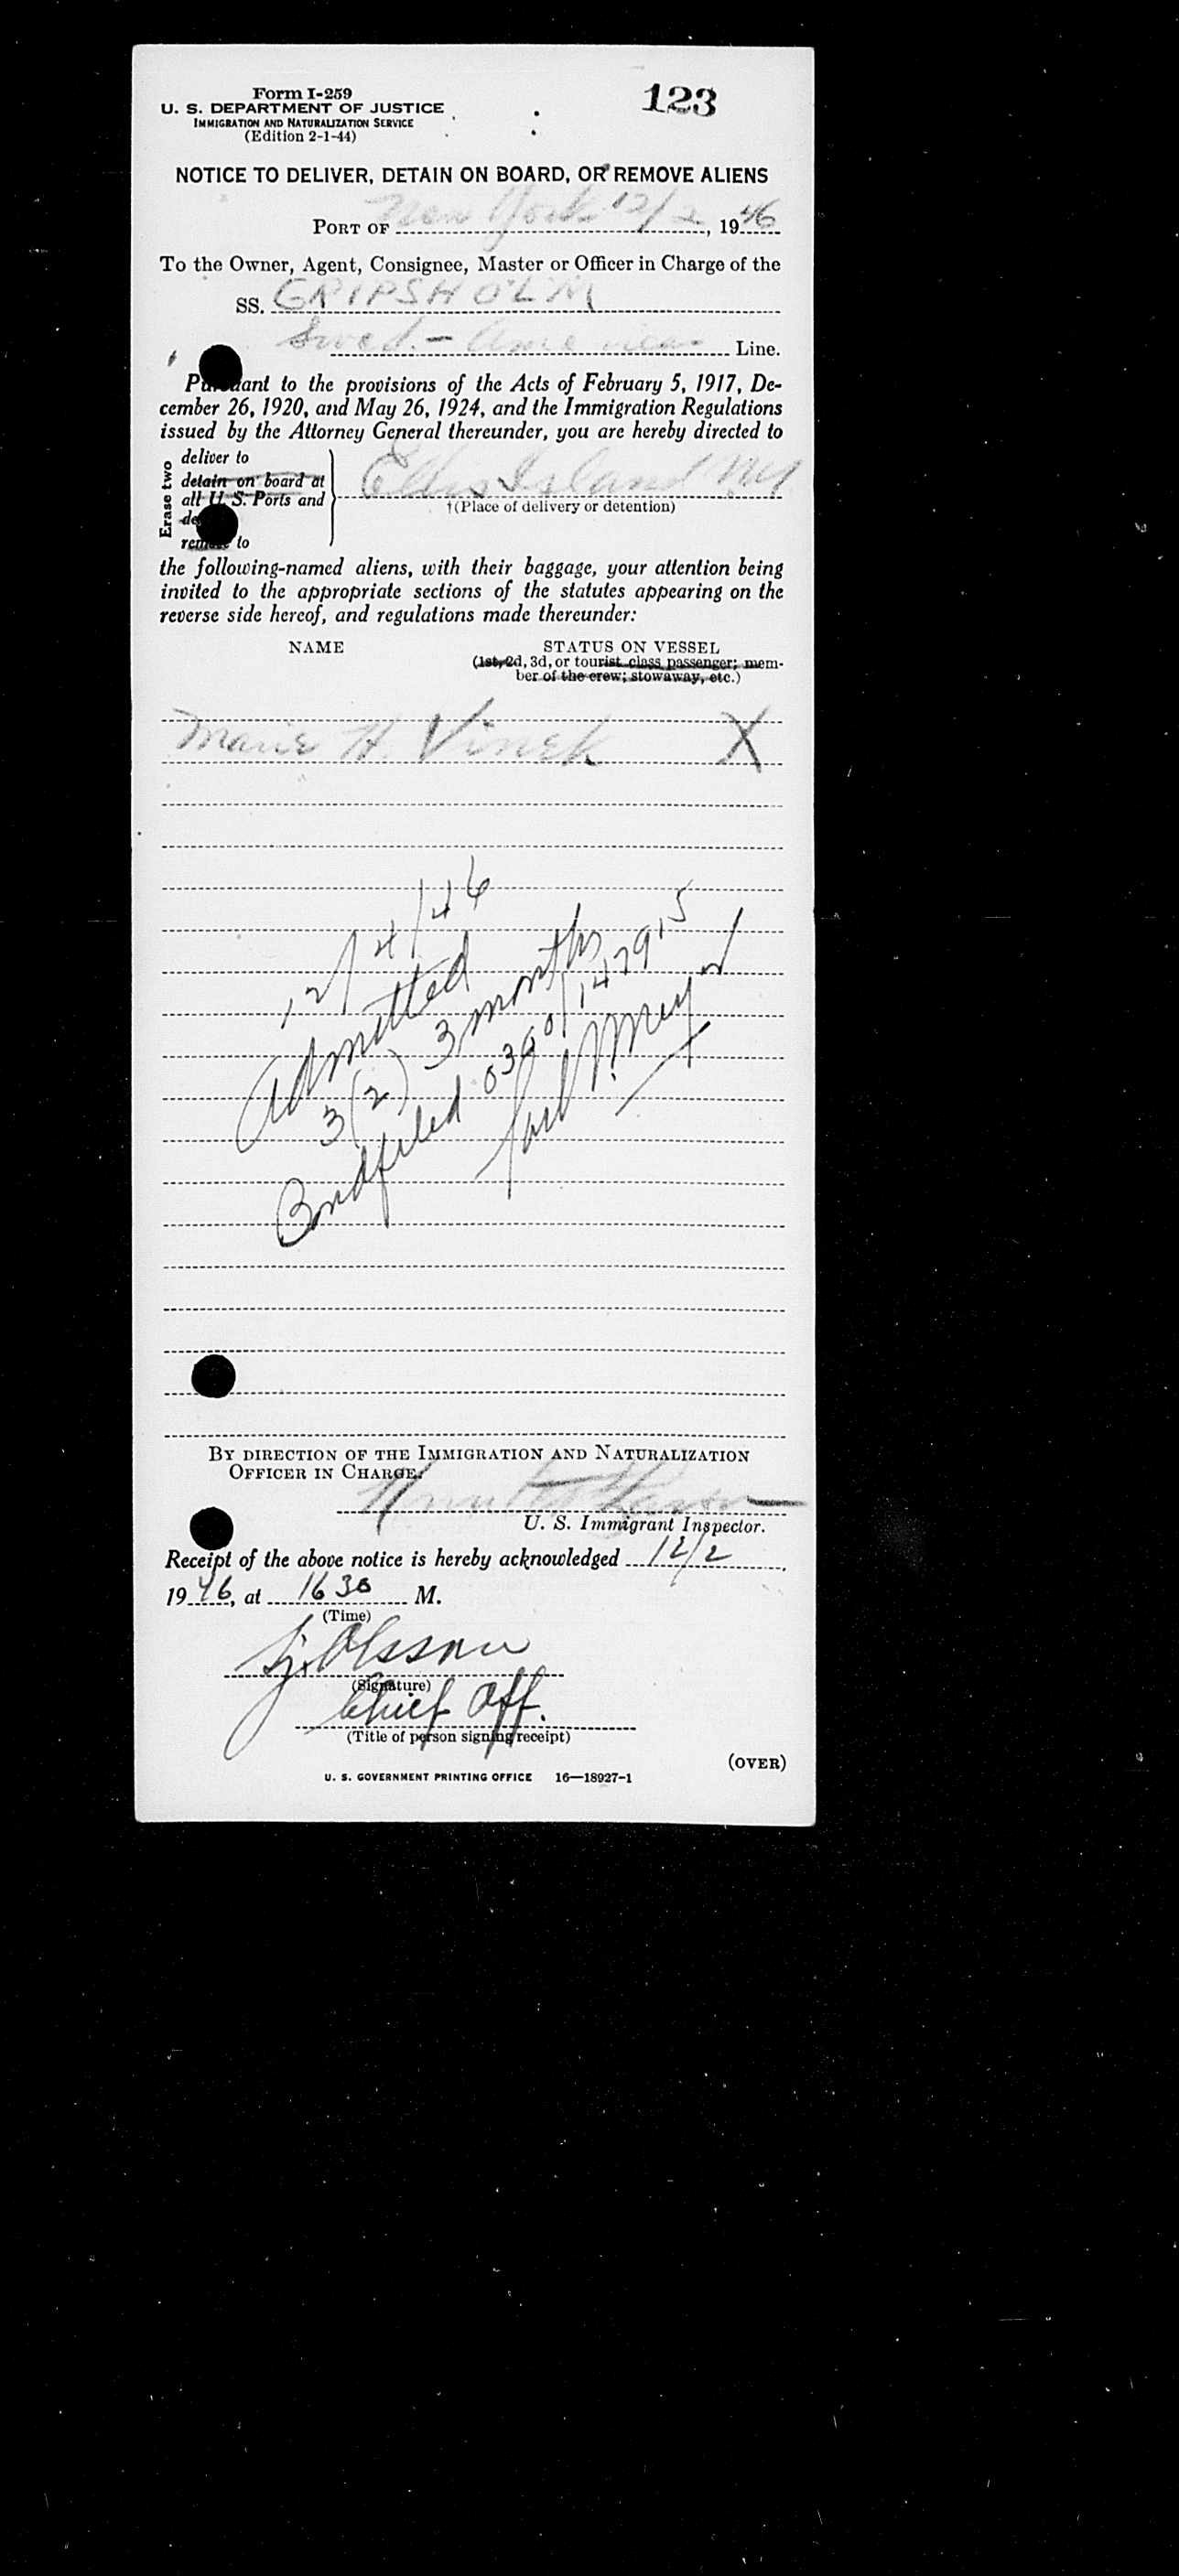 Form I-259
123
U. S. DEPARTMENT OF JUSTICE
IMMIGRATION AND NATURALIZATION SERVICE
(Edition 2-1-44)
NOTICE TO DELIVER, DETAIN ON BOARD, OR REMOVE ALIENS
PORT OF New York 12/2, 1946
To the Owner, Agent, Consignee, Master or Officer in Charge of the
SS. GRIPSHOLM
Swed.- American Line.
Pursuant to the provisions of the Acts of February 5, 1917, De-
cember 26, 1920, and May 26, 1924, and the Immigration Regulations
issued by the Attorney General thereunder, you are hereby directed to
Erase two
deliver to
detain on board at
all U. S. Ports and
remove to
Ellis Island NY
†(Place of delivery or detention)
the following-named aliens, with their baggage, your attention being
invited to the appropriate sections of the statutes appearing on the
reverse side hereof, and regulations made thereunder:
NAME
STATUS ON VESSEL
(1st, 2d, 3d, or tourist class passenger; mem-
ber of the crew; stowaway, etc.)
Marie H. Vinek X
12/4/46
Admitted
3(2) 3 months
Bond filed 0300/147915
BY DIRECTION OF THE IMMIGRATION AND NATURALIZATION
OFFICER IN CHARGE.
U. S. Immigrant Inspector.
Receipt of the above notice is hereby acknowledged 12/2,
1946, at 1630 M.
(Time)
Olsson
(Signature)
Chief Off.
(Title of person signing receipt)
(OVER)
U. S. GOVERNMENT PRINTING OFFICE 16—18927-1